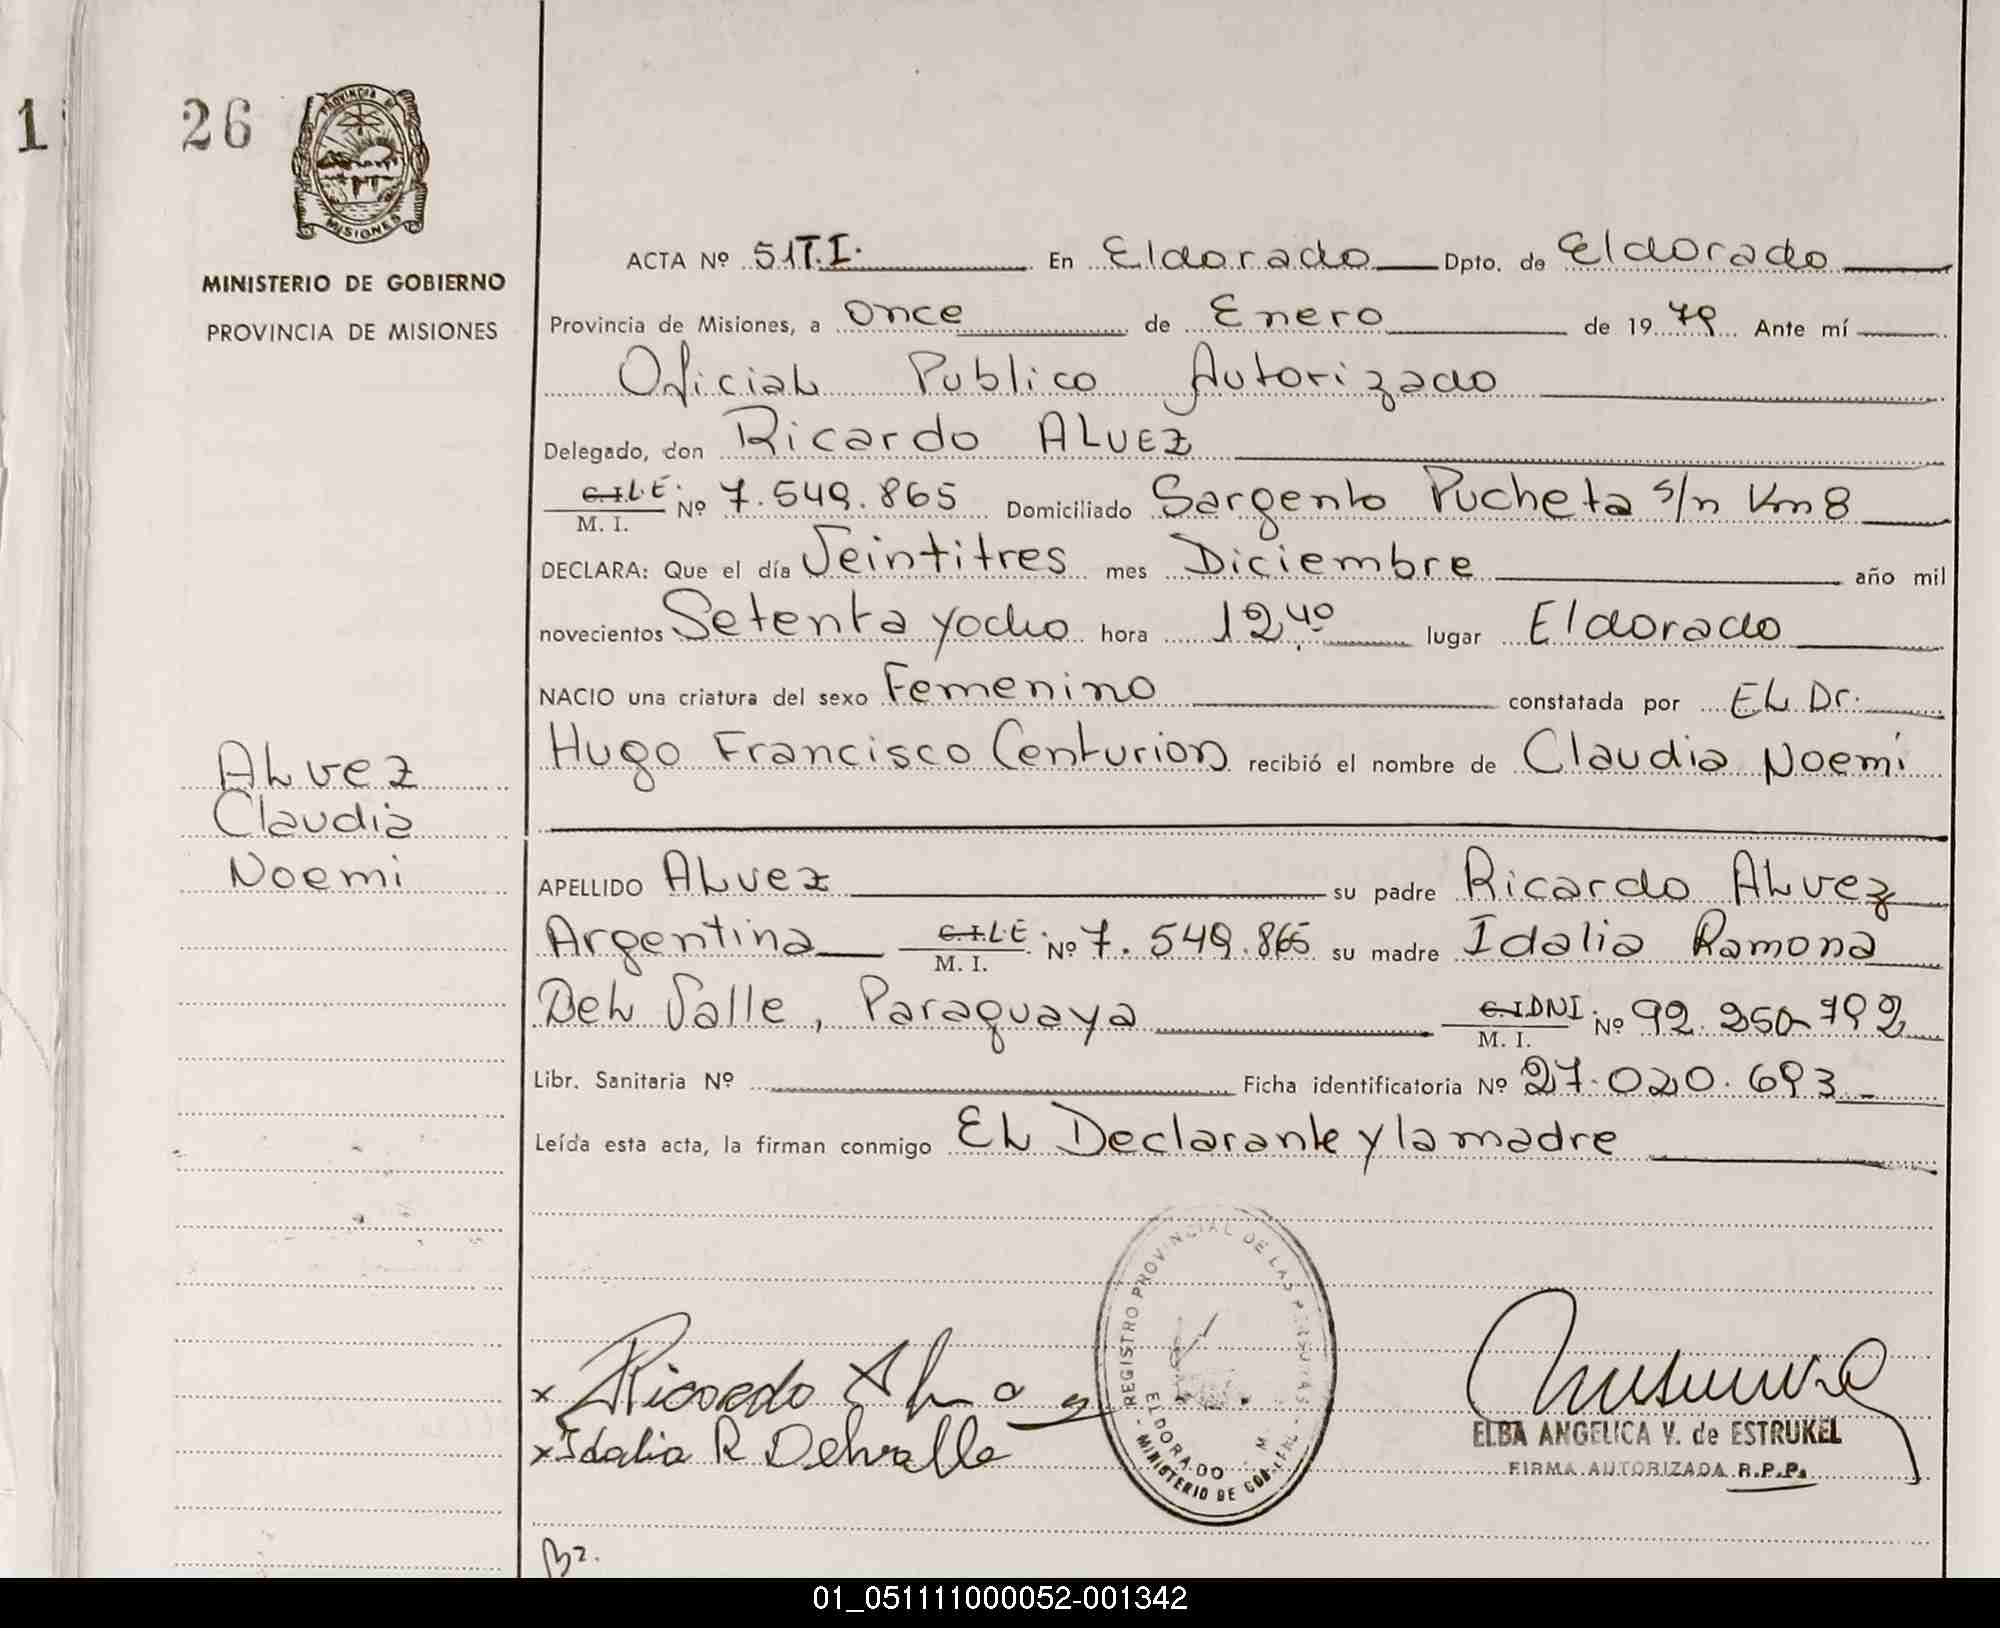 1
26
PROVINCIA DE
MISIONES
MINISTERIO DE GOBIERNO
PROVINCIA DE MISIONES
ACTA Nº 51T.I. En Eldorado Dpto. de Eldorado
Provincia de Misiones, a once de Enero de 1979 Ante mí
Oficial Publico Autorizado
Delegado, don Ricardo ALVEZ
C.I.L.E. M. I. Nº 7.549.865 Domiciliado Sargento Pucheta s/n Km 8
DECLARA: Que el día Veintitres mes Diciembre año mil
novecientos Setenta y ocho hora 12,40 lugar Eldorado
NACIO una criatura del sexo Femenino constatada por EL Dr.
Hugo Francisco Centurion recibió el nombre de Claudia Noemí
Alvez
Claudia
Noemi
APELLIDO Alvez su padre Ricardo Alvez
Argentina C.I.L.E. M. I. Nº 7.549.865 su madre Idalia Ramona
Del Valle, Paraguaya C.I.DNI M. I. Nº 92.250.792
Libr. Sanitaria Nº Ficha identificatoria Nº 27.020.693
Leída esta acta, la firman conmigo El Declarante y la madre
REGISTRO PROVINCIAL DE LAS PERSONAS
ELDORADO
MINISTERIO DE GOB.
x Ricardo Alvez
x Idalia R Delvalle
ELBA ANGELICA V. de ESTRUKEL
FIRMA AUTORIZADA R.P.P.
01_051111000052-001342